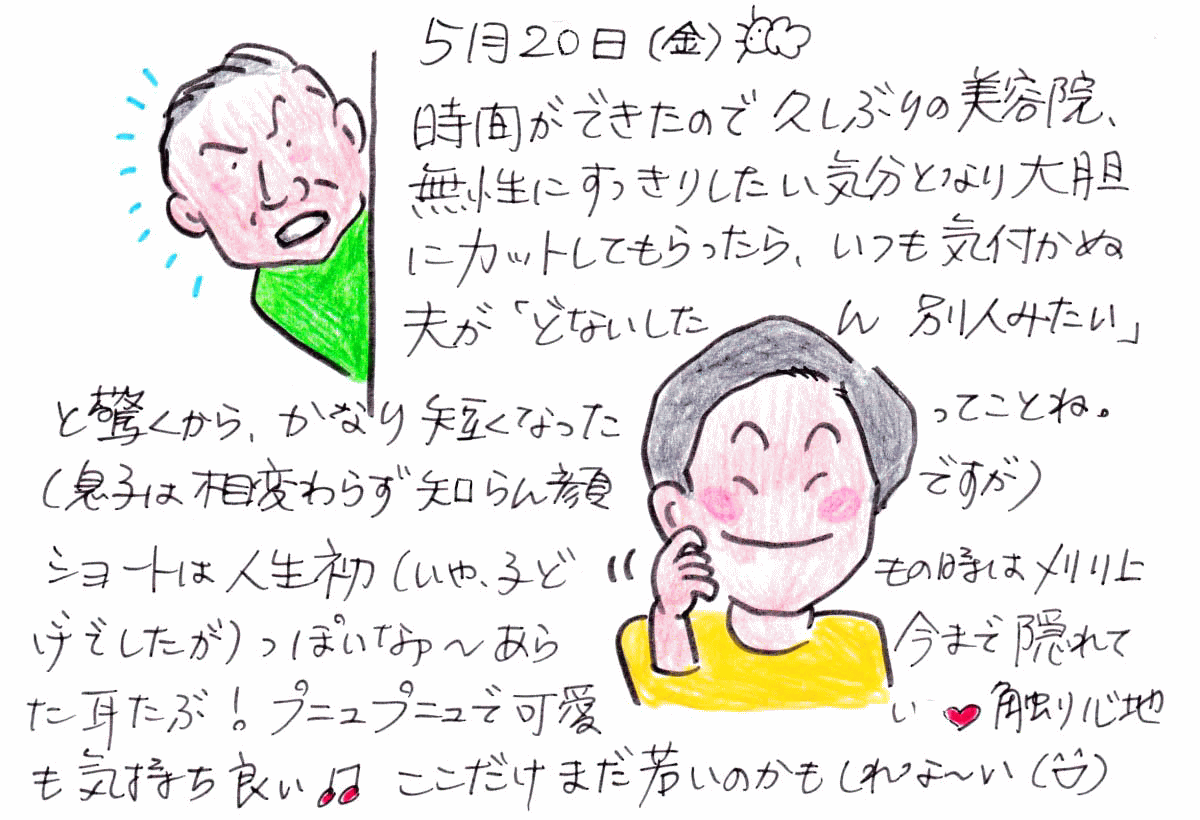 5月20日(金)
時間ができたので久しぶりの美容院、
無性にすっきりしたい気分となり大胆
にカットしてもらったら、いつも気付かぬ
夫が「どないしたん 別人みたい」
と驚くから、かなり短くなったってことね。
(息子は相変わらず知らん顔ですが)
ショートは人生初(いや、子どもの時はメリリ上
げでしたが)っぽいなァ〜あら今まで隠れて
た耳たぶ!プニュプニュで可愛い触り心地
も気持ち良いここだけまだ若いのかもしれな〜い